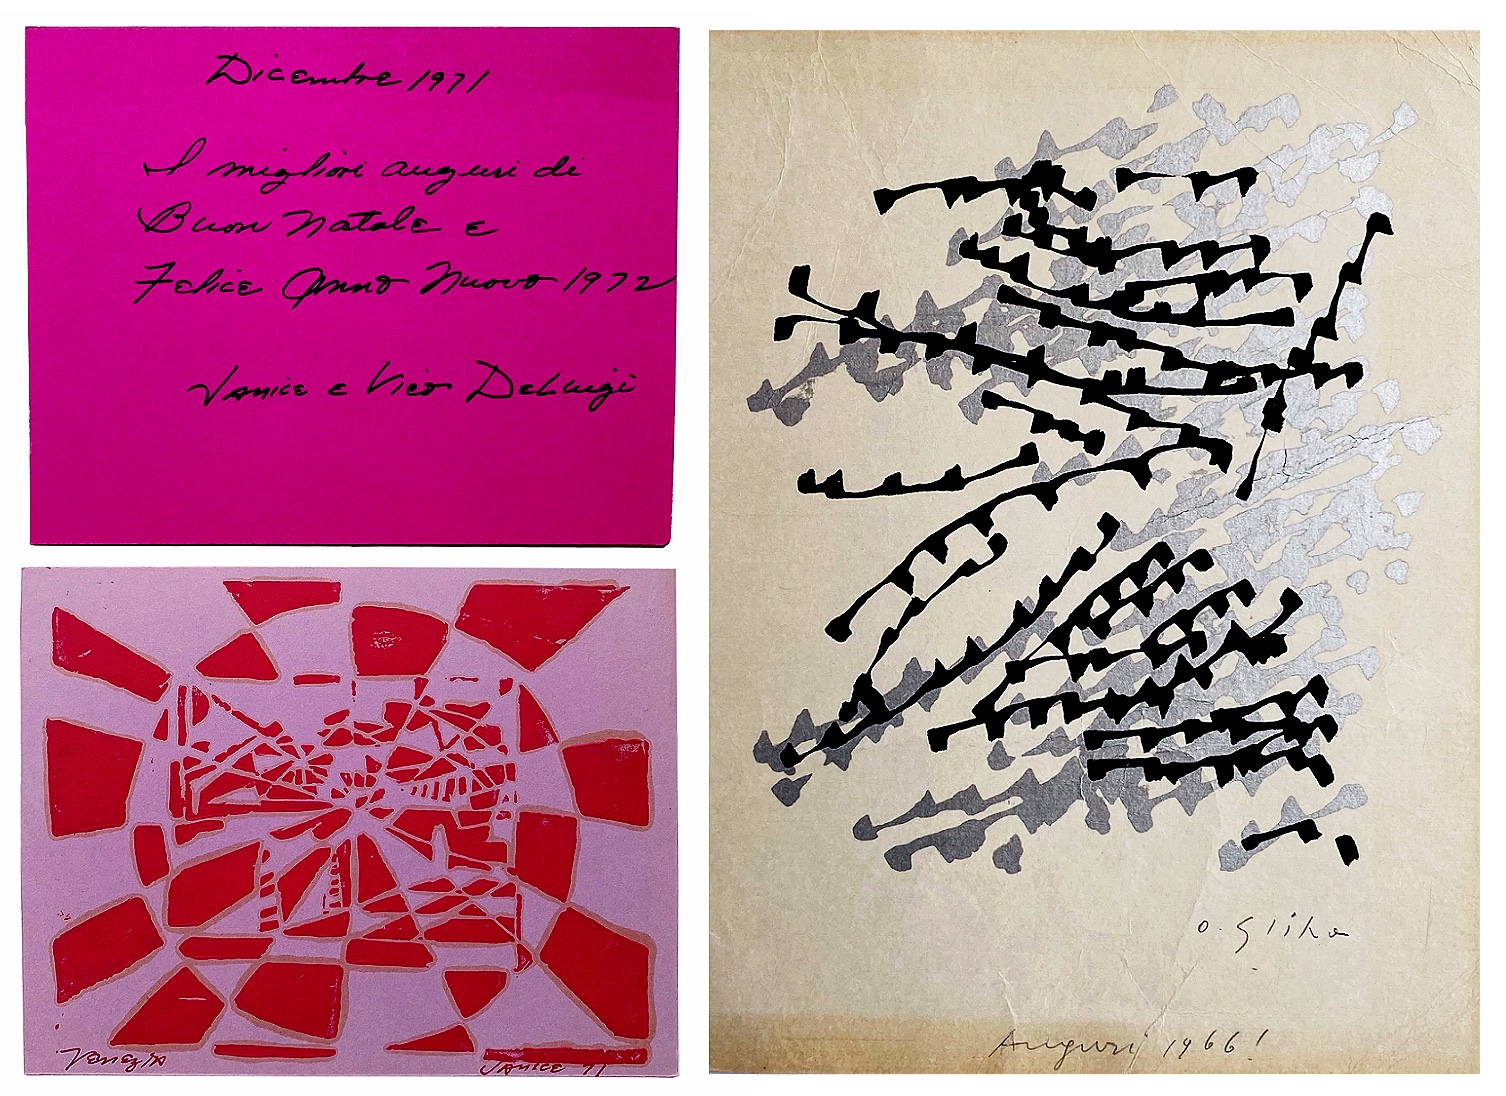 Dicembre 1971
I migliori auguri di
Buon Natale e
Felice Anno Nuovo 1972
Janice e Vico DeLuigi
Venezia
Janice 71
O. Glike
Auguri 1966!